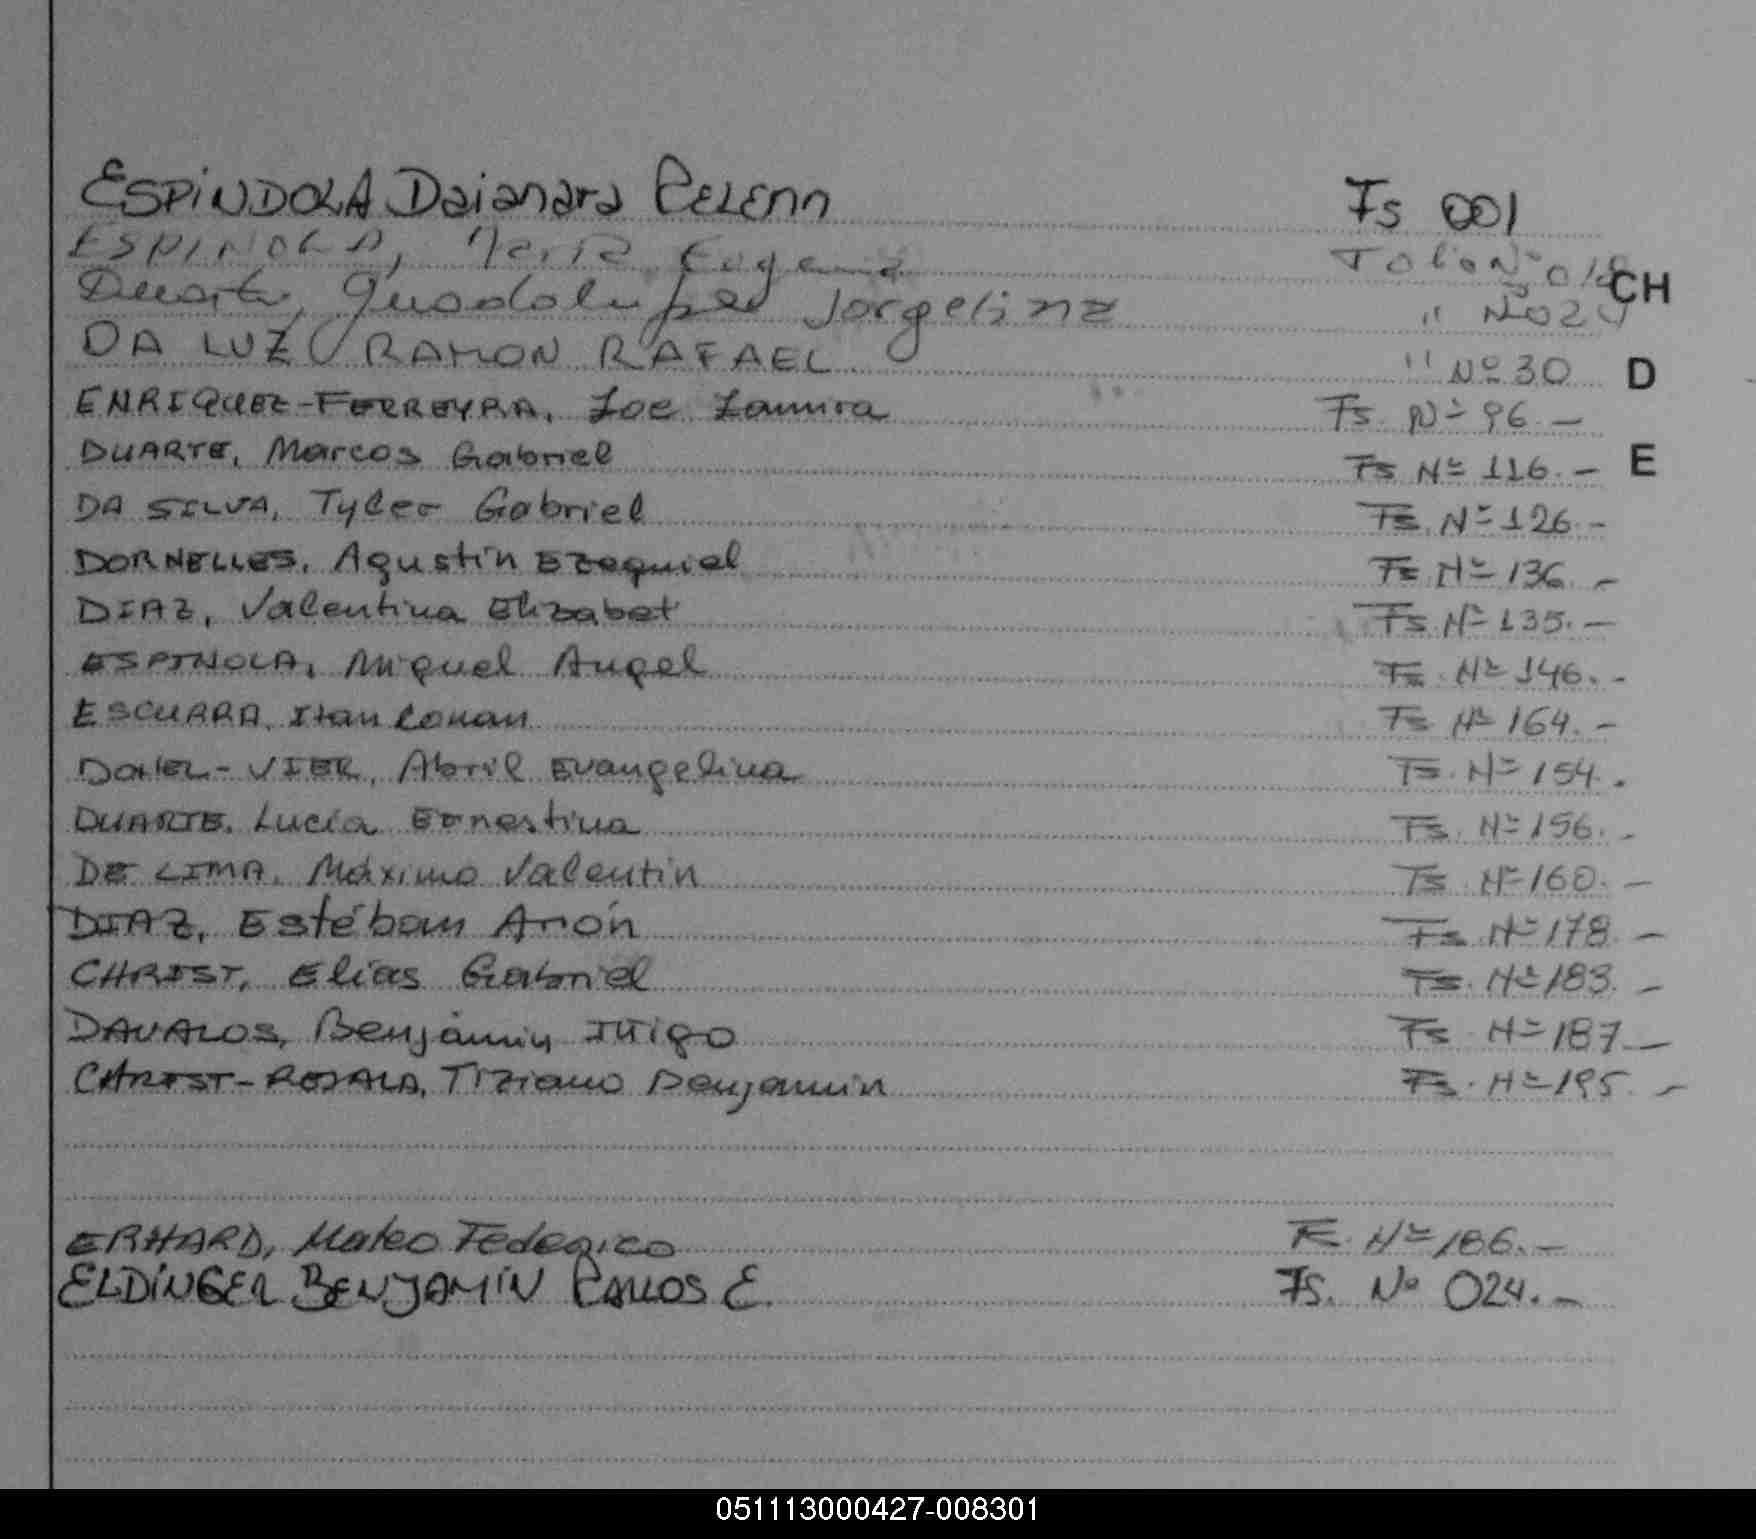 ESPINDOLA Daianara CELENN Fs 001
ESPINOLA, María Eugenia Folio Nº 018
CH
Duarte, Guadalupe Jorgelina " Nº 024
DA LUZ RAMON RAFAEL " Nº 30
D
ENRIQUEZ-FERREYRA, Zoe Zamira Fs. Nº 96.-
DUARTE, Marcos Gabriel Fs Nº 116.-
E
DA SILVA, Tyler Gabriel Fs. Nº 126.-
DORNELLES, Agustín Ezequiel Fs Nº 136.-
DIAZ, Valentina Elizabet Fs. Nº 135.-
ESPINOLA, Miguel Angel Fs. Nº 146.-
ESCURRA, Itan Conan Fs Nº 164.-
VIER, Abril Evangelina Fs. Nº 154.
DUARTE, Lucía Ernestina Fs. Nº 156.-
DE LIMA, Máximo Valentín Fs Nº 160.-
DIAZ, Estéban Arón Fs. Nº 178.-
CHRIST, Elías Gabriel Fs. Nº 183.-
DAVALOS, Benjámin Iñigo Fs. Nº 187.-
CHRIST-ROJALA, Tiziano Benjamín Fs. Nº 195.-
ERHARD, Mateo Federico F. Nº 186.-
ELDINGER BENJAMIN CARLOS E. Fs. Nº 024.-
051113000427-008301